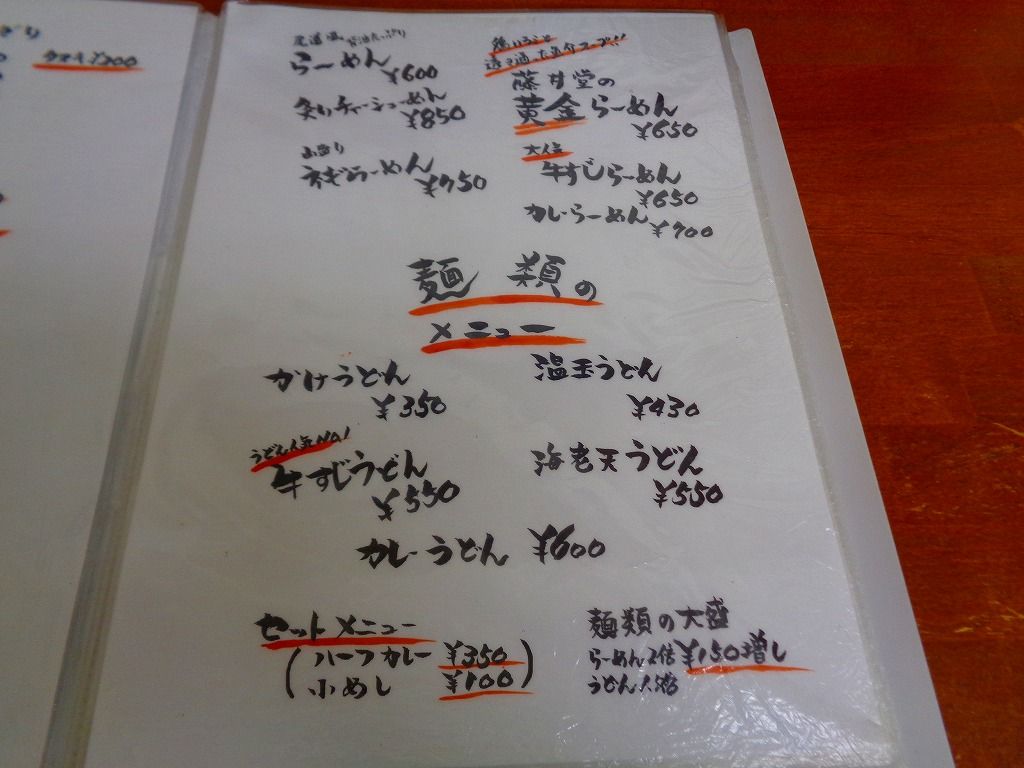 らーめん
¥600
炙りチャーシューめん
¥850
山盛り
ネギらーめん
¥750
藤井堂の
黄金らーめん
¥650
大人気
牛すじらーめん
¥650
カレーらーめん
¥700
麺類の
メニュー
かけうどん
¥350
温玉うどん
¥430
うどん人気No1
牛すじうどん
¥550
海老天うどん
¥550
カレーうどん ¥600
セットメニュー
(ハーフカレー ¥350
小めし ¥100)
麺類の大盛
らーめん ¥150増し
うどん